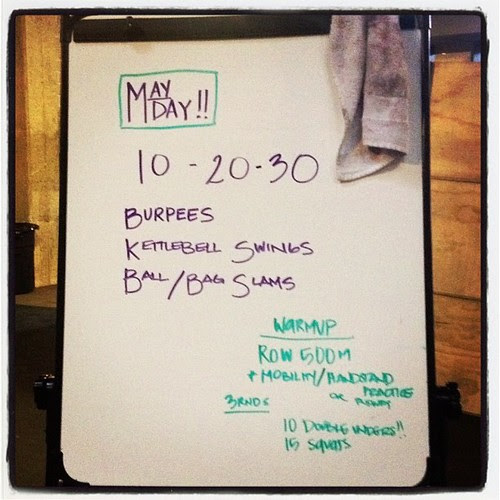 MAY
DAY!!
10 - 20 - 30
BURPEES
KETTLEBELL SWINGS
BALL/BAG SLAMS
WARMUP
ROW 500M
+ MOBILITY/HANDSTAND
PRACTICE
OR
3RNDS
10 DOUBLE UNDERS!!
15 SQUATS